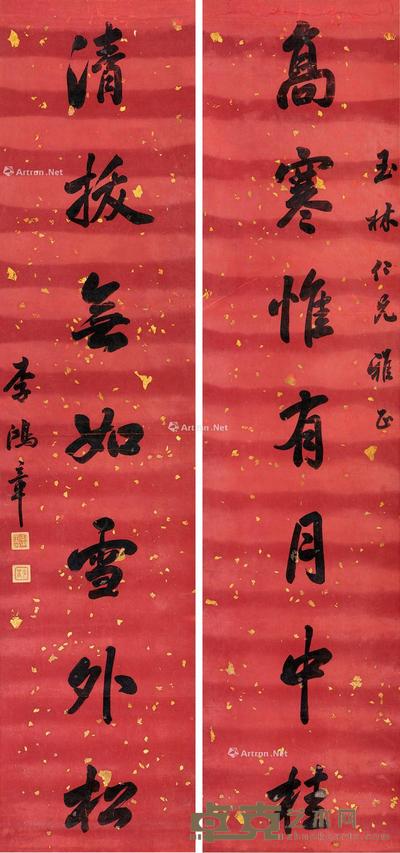 玉林仁兄雅正
高寒惟有月中桂
清拔無如雪外松
李鴻章
Artron.Net
Artron.Net
Artron.Net
Artron.Net